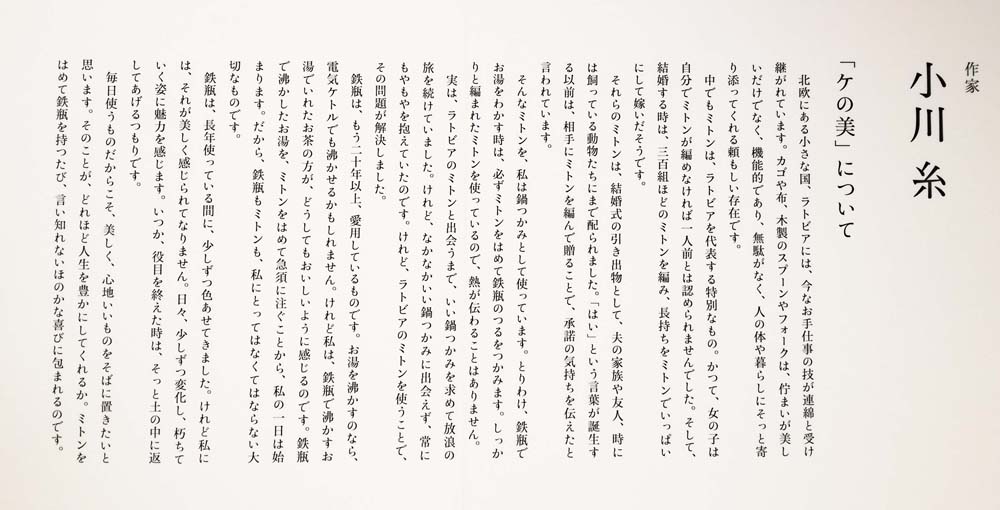 作家
小川 糸
「ケの美」について
北欧にある小さな国、ラトビアには、今なお手仕事の技が連綿と受け
継がれています。カゴや布、木製のスプーンやフォークは、佇まいが美し
いだけでなく、機能的であり、無駄がなく、人の体や暮らしにそっと寄
り添ってくれる頼もしい存在です。
中でもミトンは、ラトビアを代表する特別なもの。かつて、女の子は
自分でミトンが編めなければ一人前とは認められませんでした。そして、
結婚する時は、三百組ほどのミトンを編み、長持ちをミトンでいっぱい
にして嫁いだそうです。
それらのミトンは、結婚式の引き出物として、夫の家族や友人、時に
は飼っている動物たちにまで配られました。「はい」という言葉が誕生す
る以前は、相手にミトンを編んで贈ることで、承諾の気持ちを伝えたと
言われています。
そんなミトンを、私は鍋つかみとして使っています。とりわけ、鉄瓶で
お湯をわかす時は、必ずミトンをはめて鉄瓶のつるをつかみます。しっか
りと編まれたミトンを使っているので、熱が伝わることはありません。
実は、ラトビアのミトンと出会うまで、いい鍋つかみを求めて放浪の
旅を続けていました。けれど、なかなかいい鍋つかみに出会えず、常に
もやもやを抱えていたのです。けれど、ラトビアのミトンを使うことで、
その問題が解決しました。
鉄瓶は、もう二十年以上、愛用しているものです。お湯を沸かすのなら、
電気ケトルでも沸かせるかもしれません。けれど私は、鉄瓶で沸かすお
湯でいれたお茶の方が、どうしてもおいしいように感じるのです。鉄瓶
で沸かしたお湯を、ミトンをはめて急須に注ぐことから、私の一日は始
まります。だから、鉄瓶もミトンも、私にとってはなくてはならない大
切なものです。
鉄瓶は、長年使っている間に、少しずつ色あせてきました。けれど私に
は、それが美しく感じられてなりません。日々、少しずつ変化し、朽ちて
いく姿に魅力を感じます。いつか、役目を終えた時は、そっと土の中に返
してあげるつもりです。
毎日使うものだからこそ、美しく、心地いいものをそばに置きたいと
思います。そのことが、どれほど人生を豊かにしてくれるか。ミトンを
はめて鉄瓶を持つたび、言い知れないほのかな喜びに包まれるのです。